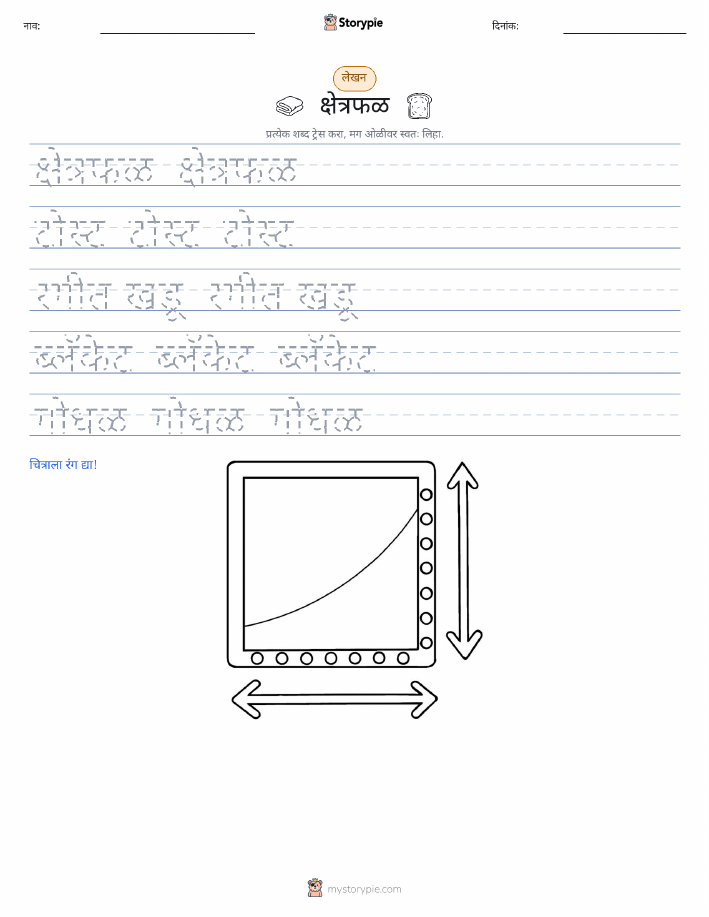 नाव:
Storypie
दिनांक:
लेखन
क्षेत्रफळ
प्रत्येक शब्द ट्रेस करा, मग ओळीवर स्वतः लिहा.
क्षेत्रफळ क्षेत्रफळ
टोस्ट टोस्ट टोस्ट
रंगीत खडू रंगीत खडू
ब्लँकेट ब्लँकेट ब्लँकेट
गोंधळ गोंधळ गोंधळ
चित्राला रंग द्या!
mystorypie.com